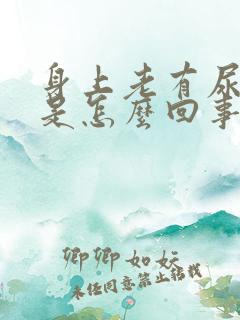 身上老有尿
是怎麼回事
卿卿如妘
未经同意禁止转载